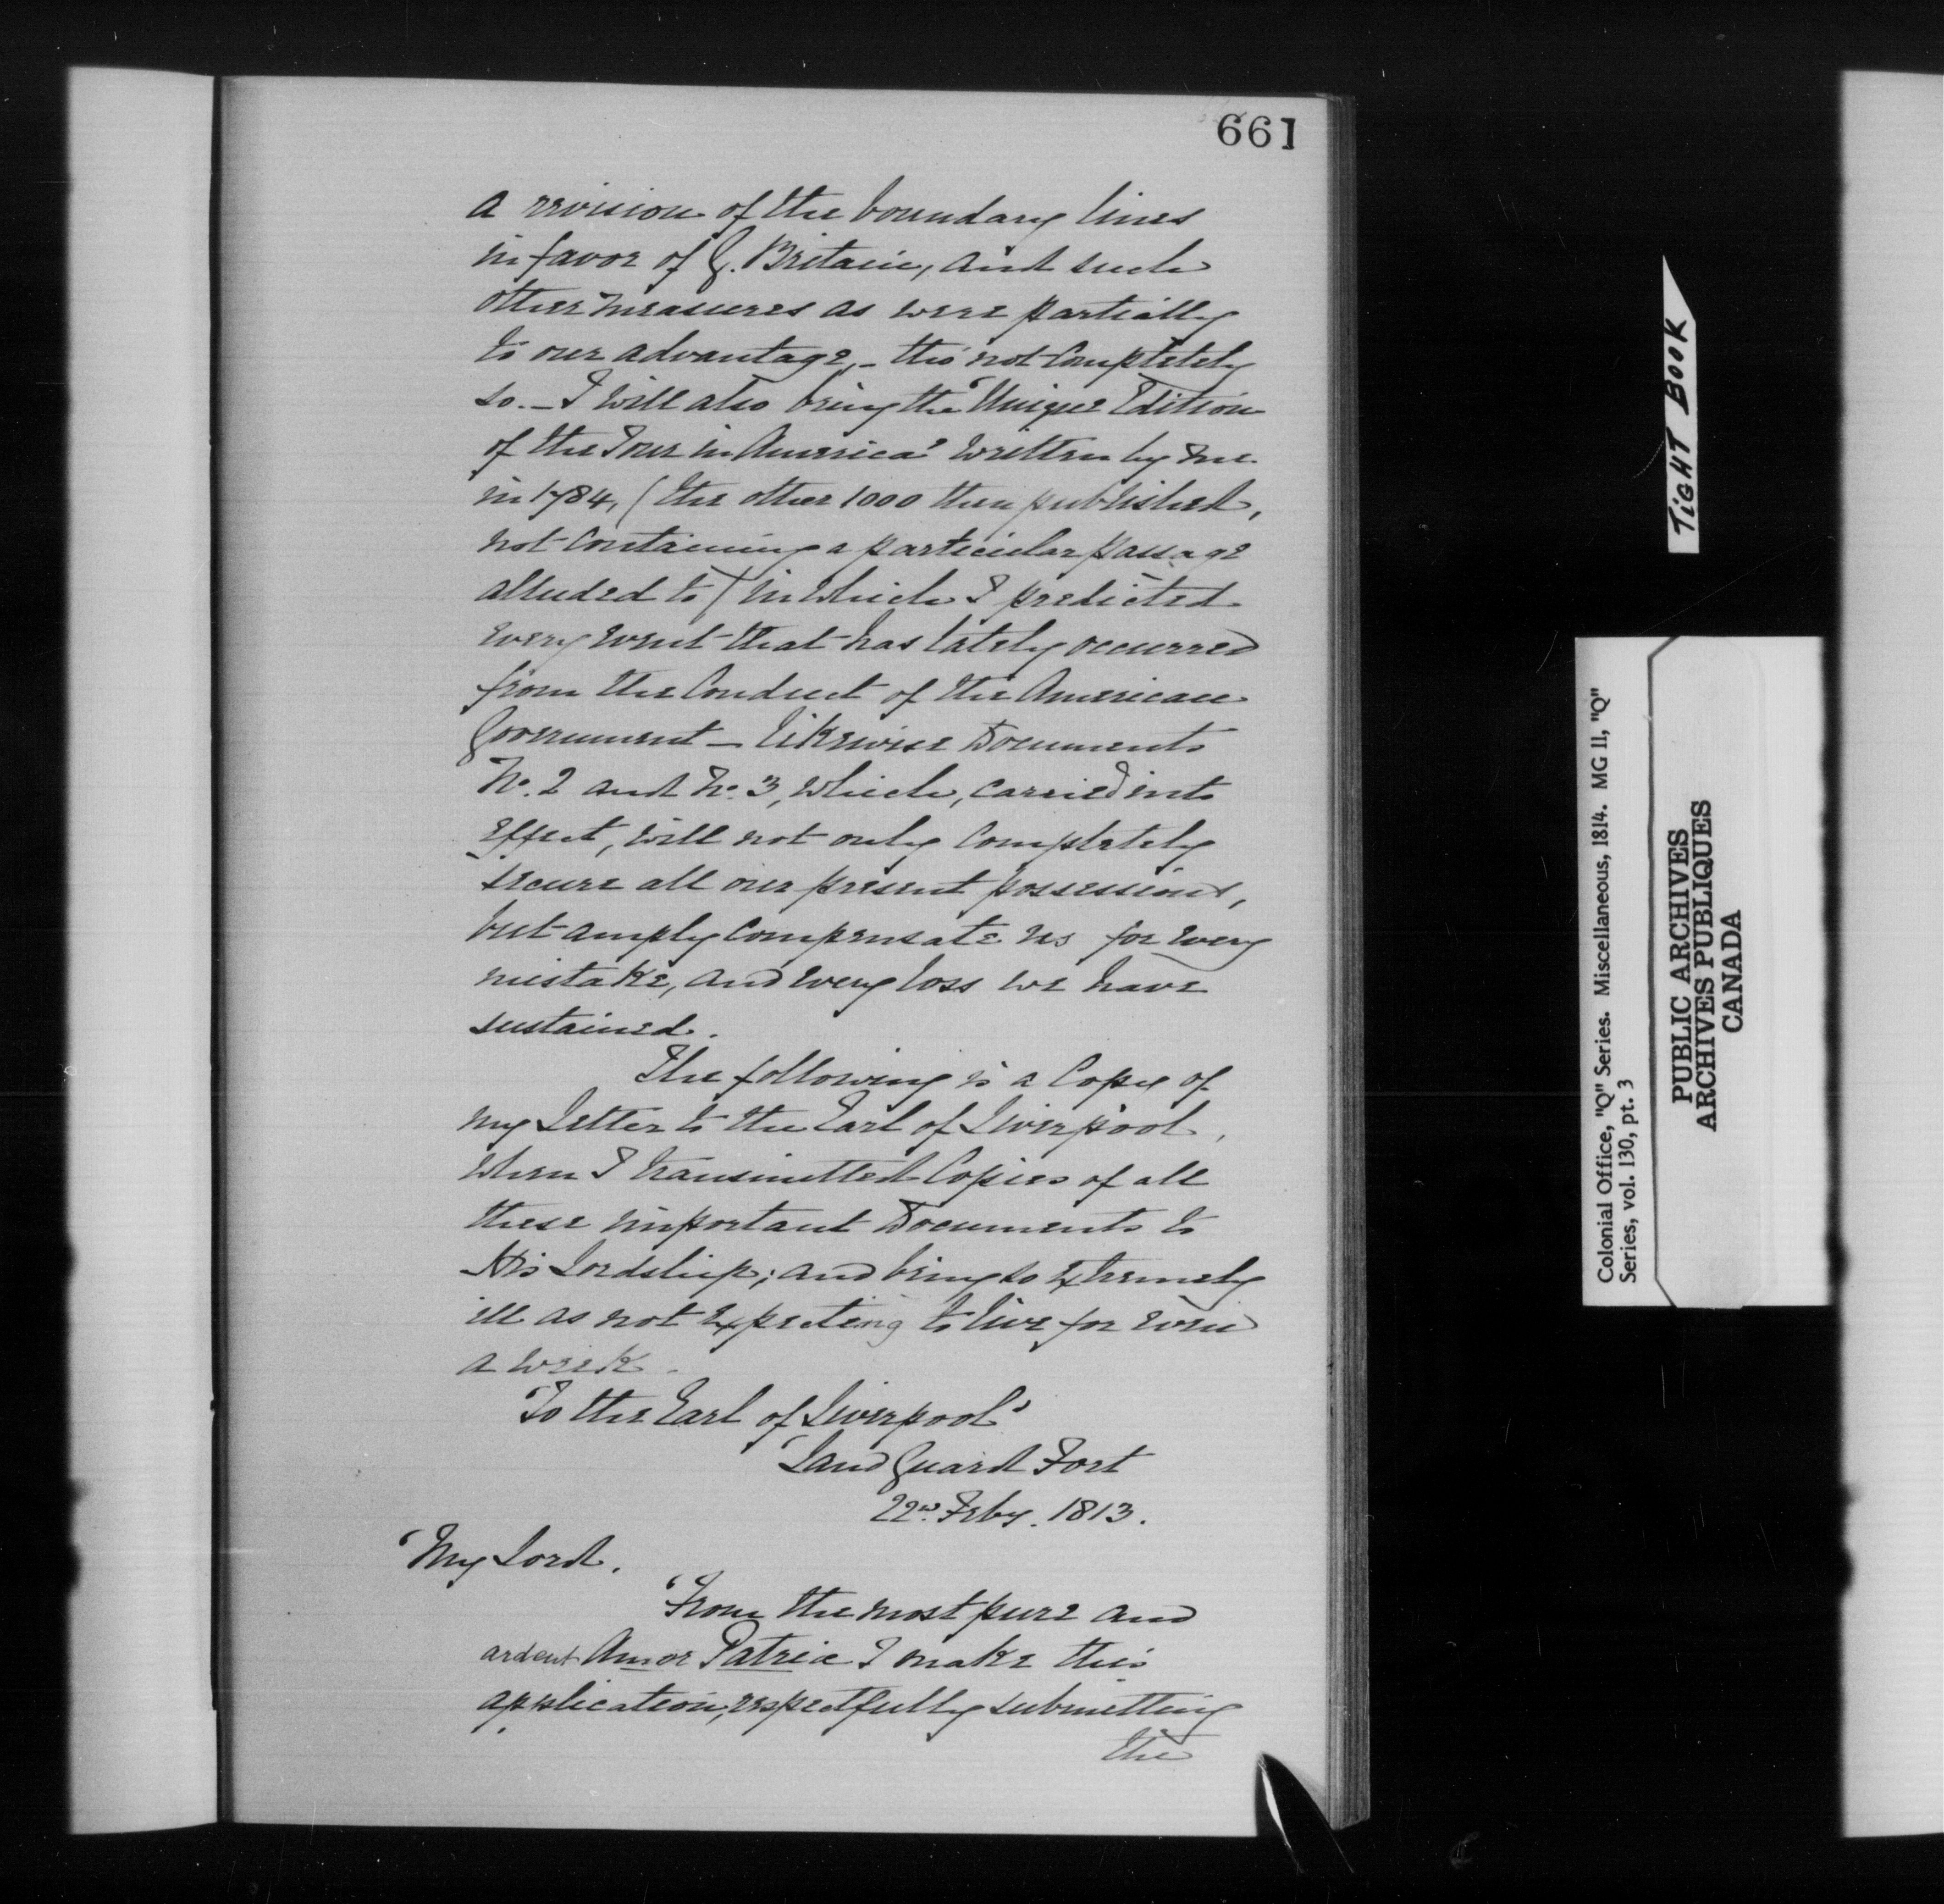 661
a revision of the boundary lines
in favor of G. Britain, and such
other measures as were partially
to our advantage, - tho' not Completely
so. - I will also bring the 'Unique Edition
of the Tour in America' written by me
in 1784, (the other 1000 then published,
not Containing a particular passage
alluded to) in which I predicted
every event that has lately occurred
from the Conduct of the American
Government - likewise Documents
No. 2 and No. 3, which, carried into
effect, will not only Completely
secure all our present possessions,
but amply Compensate us for every
mistake, and every loss we have
sustained.
The following is a Copy of
my Letter to the Earl of Liverpool,
when I transmitted Copies of all
these important Documents to
His Lordship; and being so extremely
ill as not expecting to live for even
a week -
'To the Earl of Liverpool'
'Land Guard Fort
22nd. Feby. 1813.
'My Lord.
'From the most pure and
ardent Amor Patriæ I make this
application, respectfully submitting
the
TIGHT BOOK
Colonial Office, "Q" Series. Miscellaneous, 1814. MG 11, "Q"
Series, vol. 130, pt. 3
PUBLIC ARCHIVES
ARCHIVES PUBLIQUES
CANADA